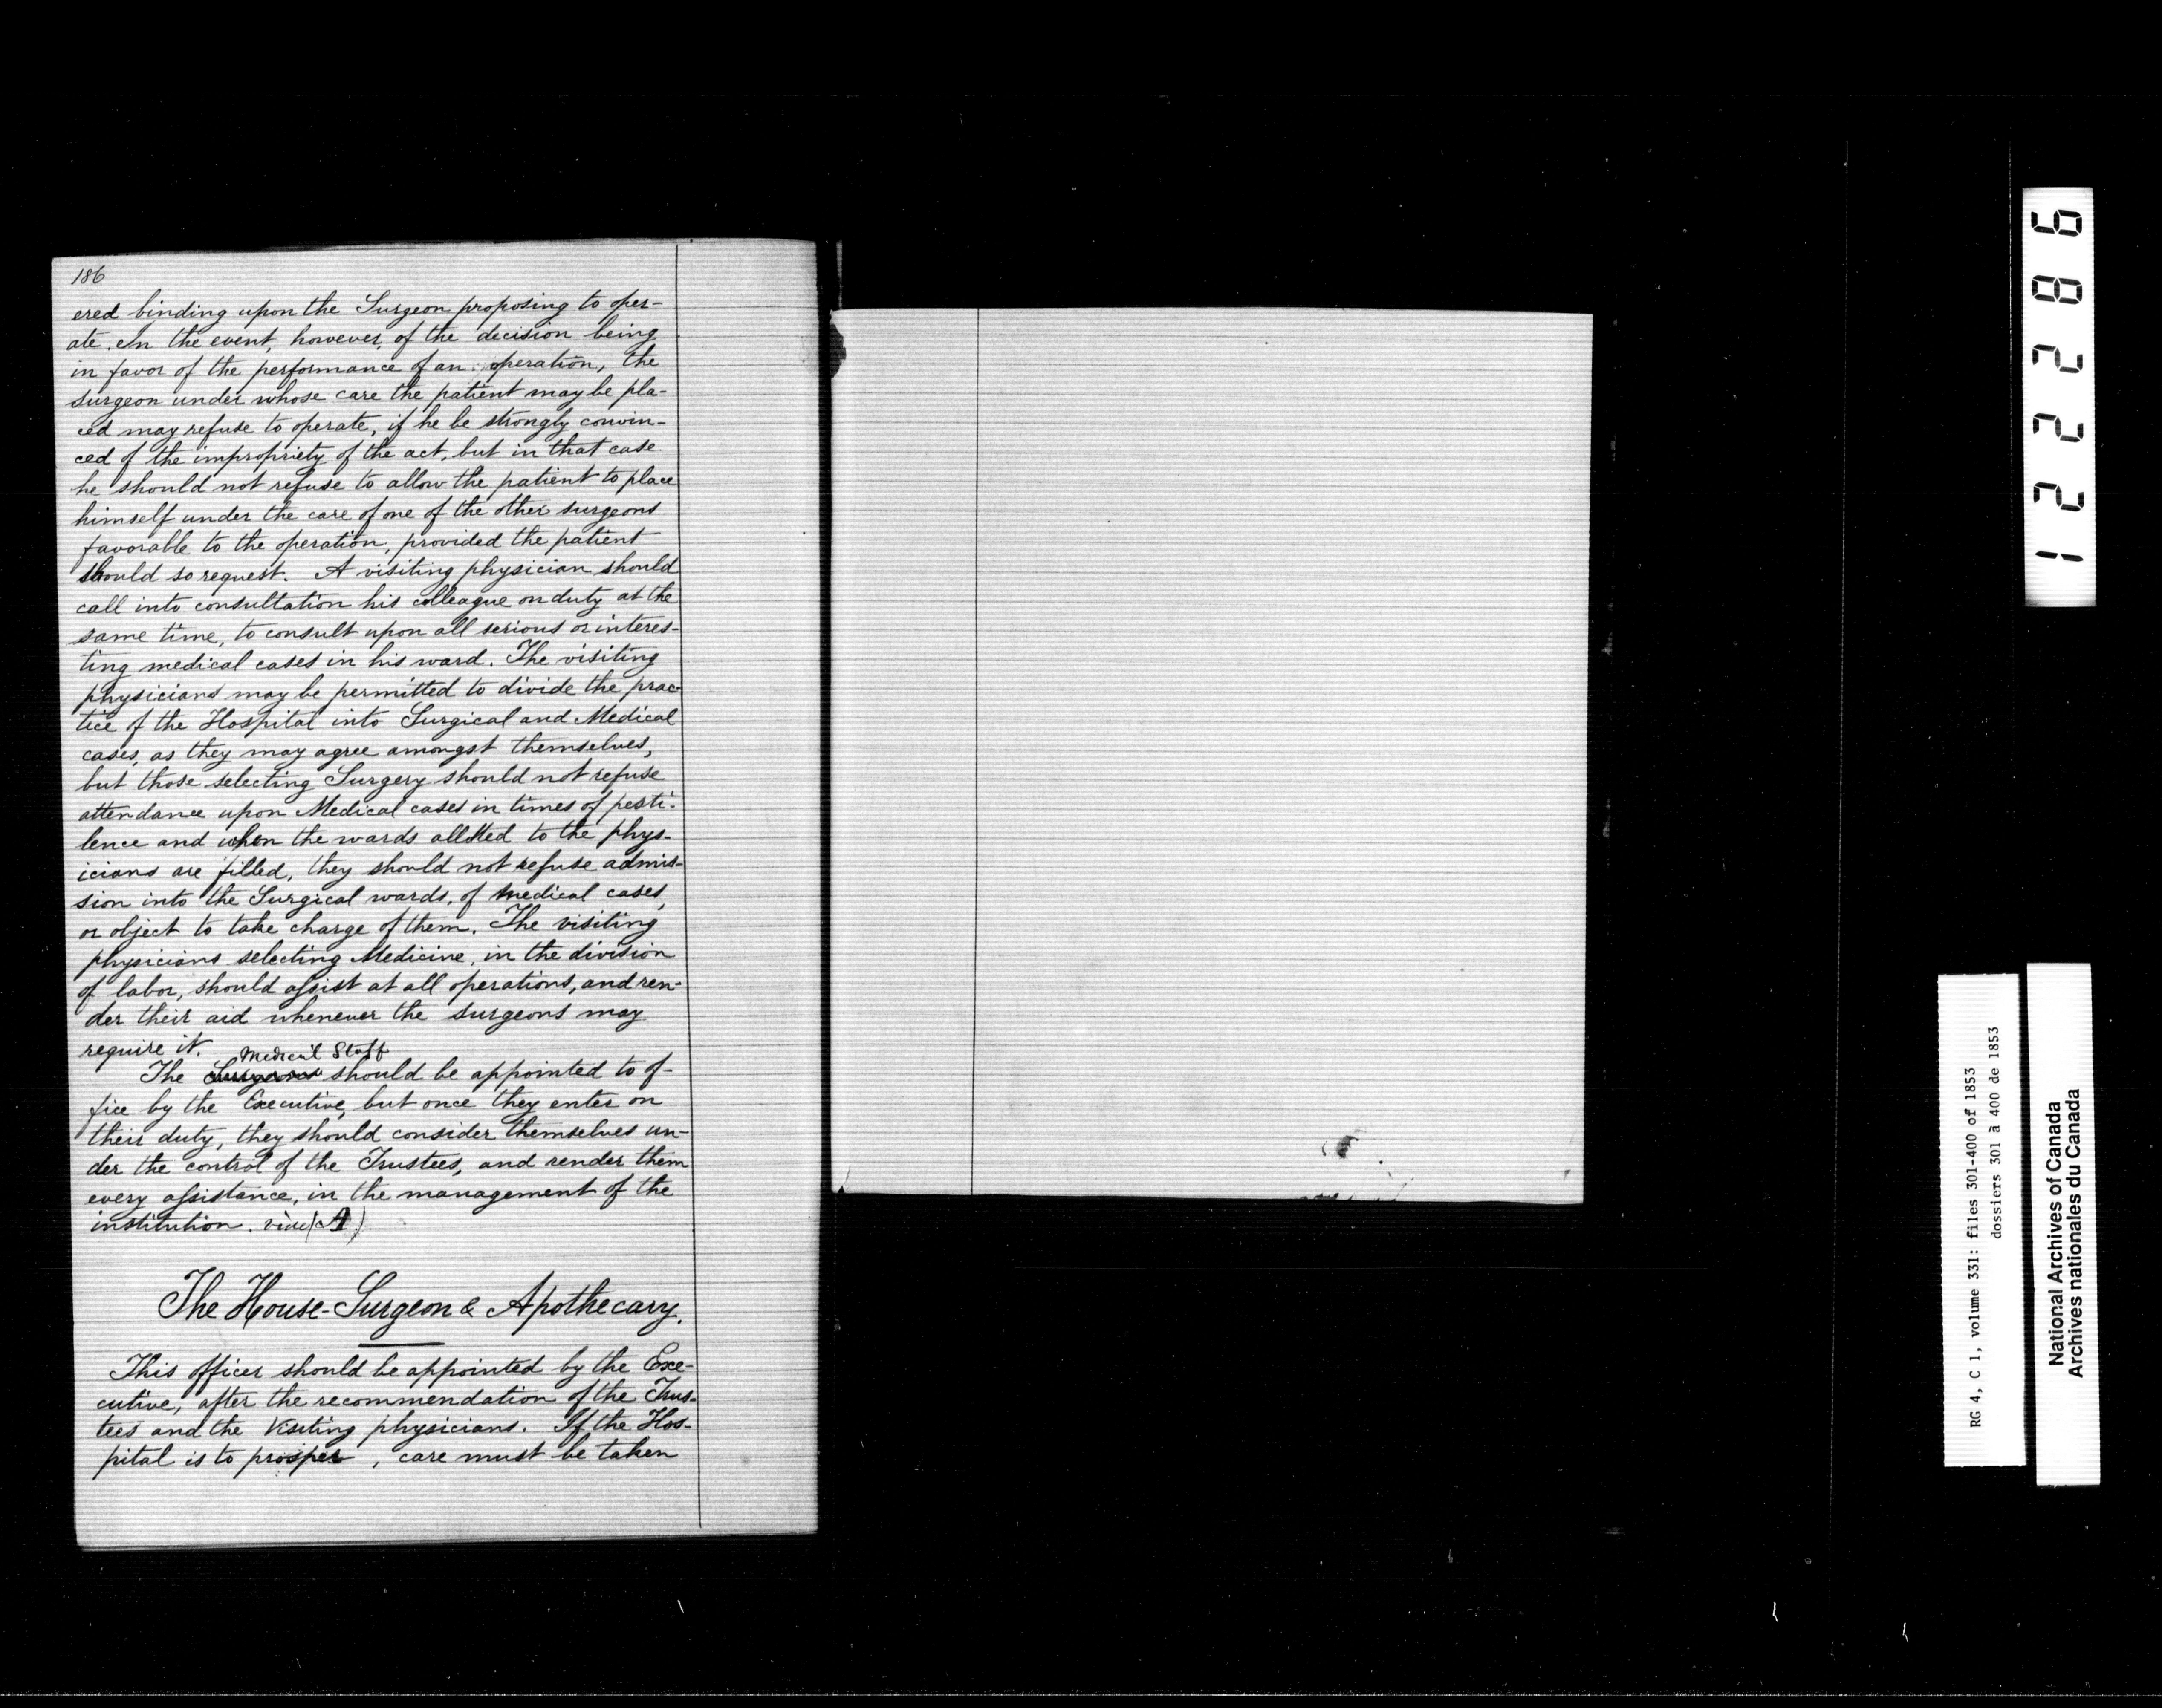 186
ered binding upon the Surgeon proposing to oper-
ate. In the event, however, of the decision being
in favor of the performance of an operation, the
surgeon under whose care the patient may be pla-
ced may refuse to operate, if he be strongly convin-
ced of the impropriety of the act, but in that case
he should not refuse to allow the patient to place
himself under the care of one of the other surgeons
favorable to the operation, provided the patient
should so request. A visiting physician should
call into consultation his colleague on duty at the
same time, to consult upon all serious or interes-
ting medical cases in his ward. The visiting
physicians may be permitted to divide the prac-
tice of the Hospital into Surgical and Medical
cases, as they may agree amongst themselves,
but those selecting Surgery should not refuse
attendance upon Medical cases in times of pesti-
lence and when the wards allotted to the phys-
icians are filled, they should not refuse admis-
sion into the Surgical wards, of medical cases,
or object to take charge of them. The visiting
physicians selecting Medicine, in the division
of labor, should assist at all operations, and ren-
der their aid whenever the surgeons may
require it.
Medical Staff
The Surgeons should be appointed to of-
fice by the Executive, but once they enter on
their duty, they should consider themselves un-
der the control of the Trustees, and render them
every assistance, in the management of the
institution. (A)
The House-Surgeon & Apothecary.
This officer should be appointed by the Exe-
cutive, after the recommendation of the Trus-
tees and the Visiting physicians. If the Hos-
pital is to prosper, care must be taken
122286
RG 4, C 1, volume 331: files 301-400 of 1853
dossiers 301 à 400 de 1853
National Archives of Canada
Archives nationales du Canada